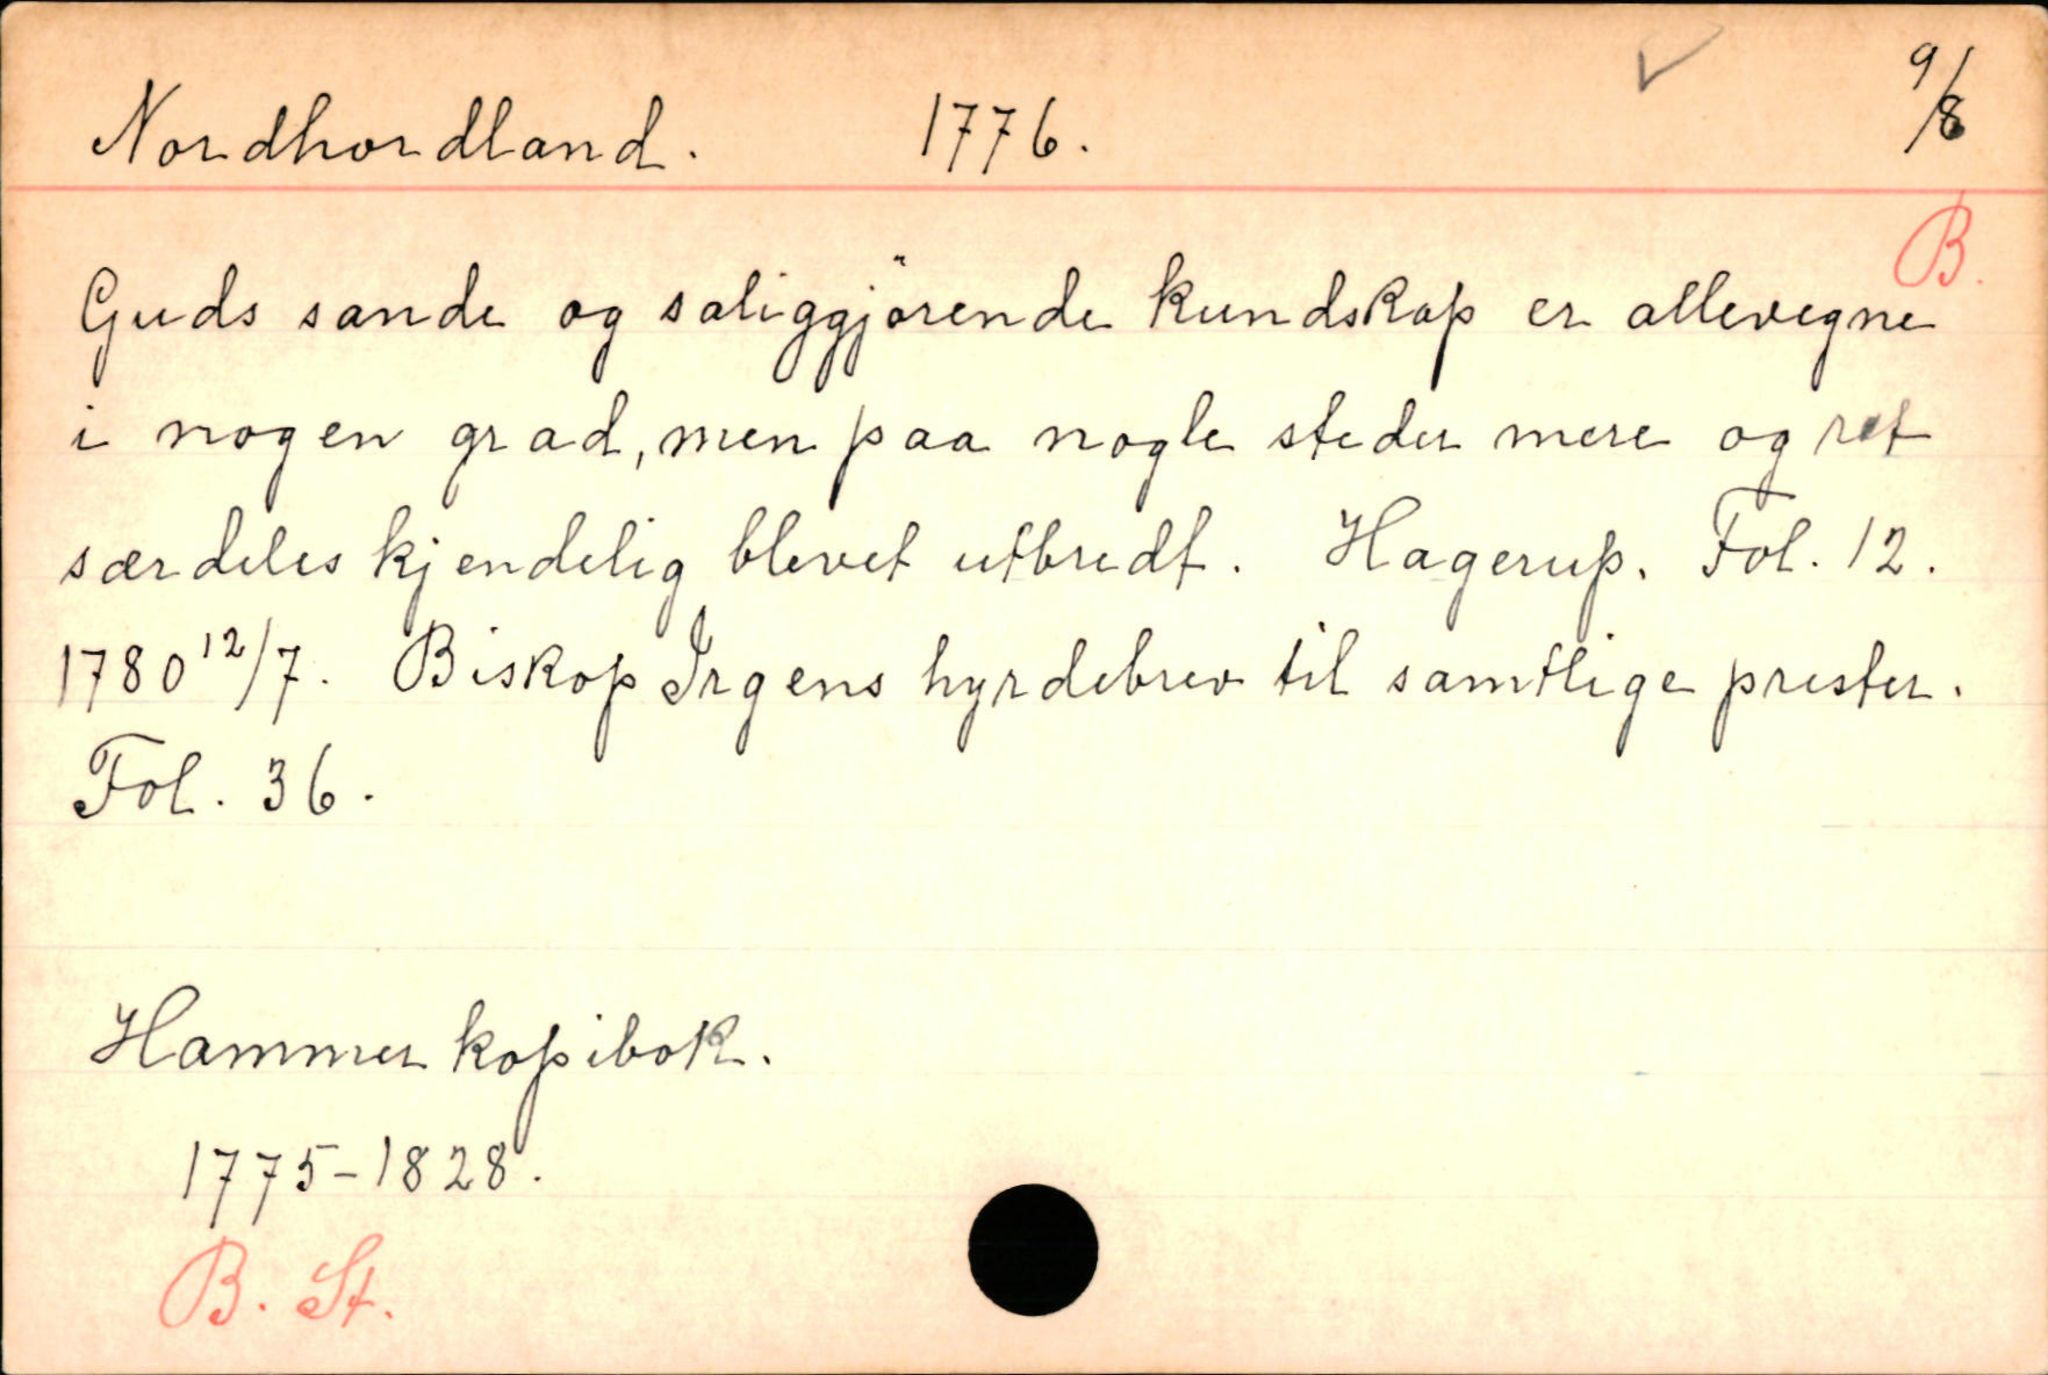 Nordhordland. 1776. 9/8
B.
Guds sande og saliggjörende kundskap er allevegne
i nogen grad, men paa nogle steder mere og ret
særdeles kjendelig blevet utbredt. Hagerup. Fol. 12.
1780 12/7. Biskop Irgens hyrdebrev til samtlige prester.
Fol. 36.
Hammer kopibok.
1775-1828.
B. St.